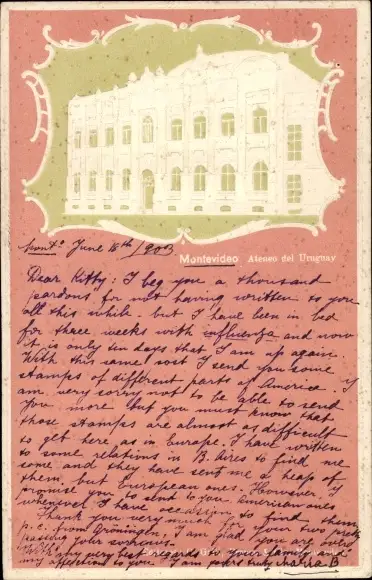 Mont° June 15th/1903
Montevideo Ateneo del Uruguay
Dear Kitty: I beg you a thousand
pardons for not having written to you
all this while. but I have been in bed
for three weeks with influenza and now
it is only ten days that I am up again.
With this same post I send you some
stamps of different parts of America. I
am very sorry not to be able to send
you more but you must know that
those stamps are almost as difficult
to get here as in Europe. I have written
to some relations in B. Aires to find me
some and they have sent me a heap of
them, but European ones. However, I
promise you to send to you American ones
whenever I have occasion to find them
Thank you very much for your two pretty
p.c. from Groningen, I am glad you are over
passing your
With my very best regards to your family and
my affections to you I am yours truly Maria B.